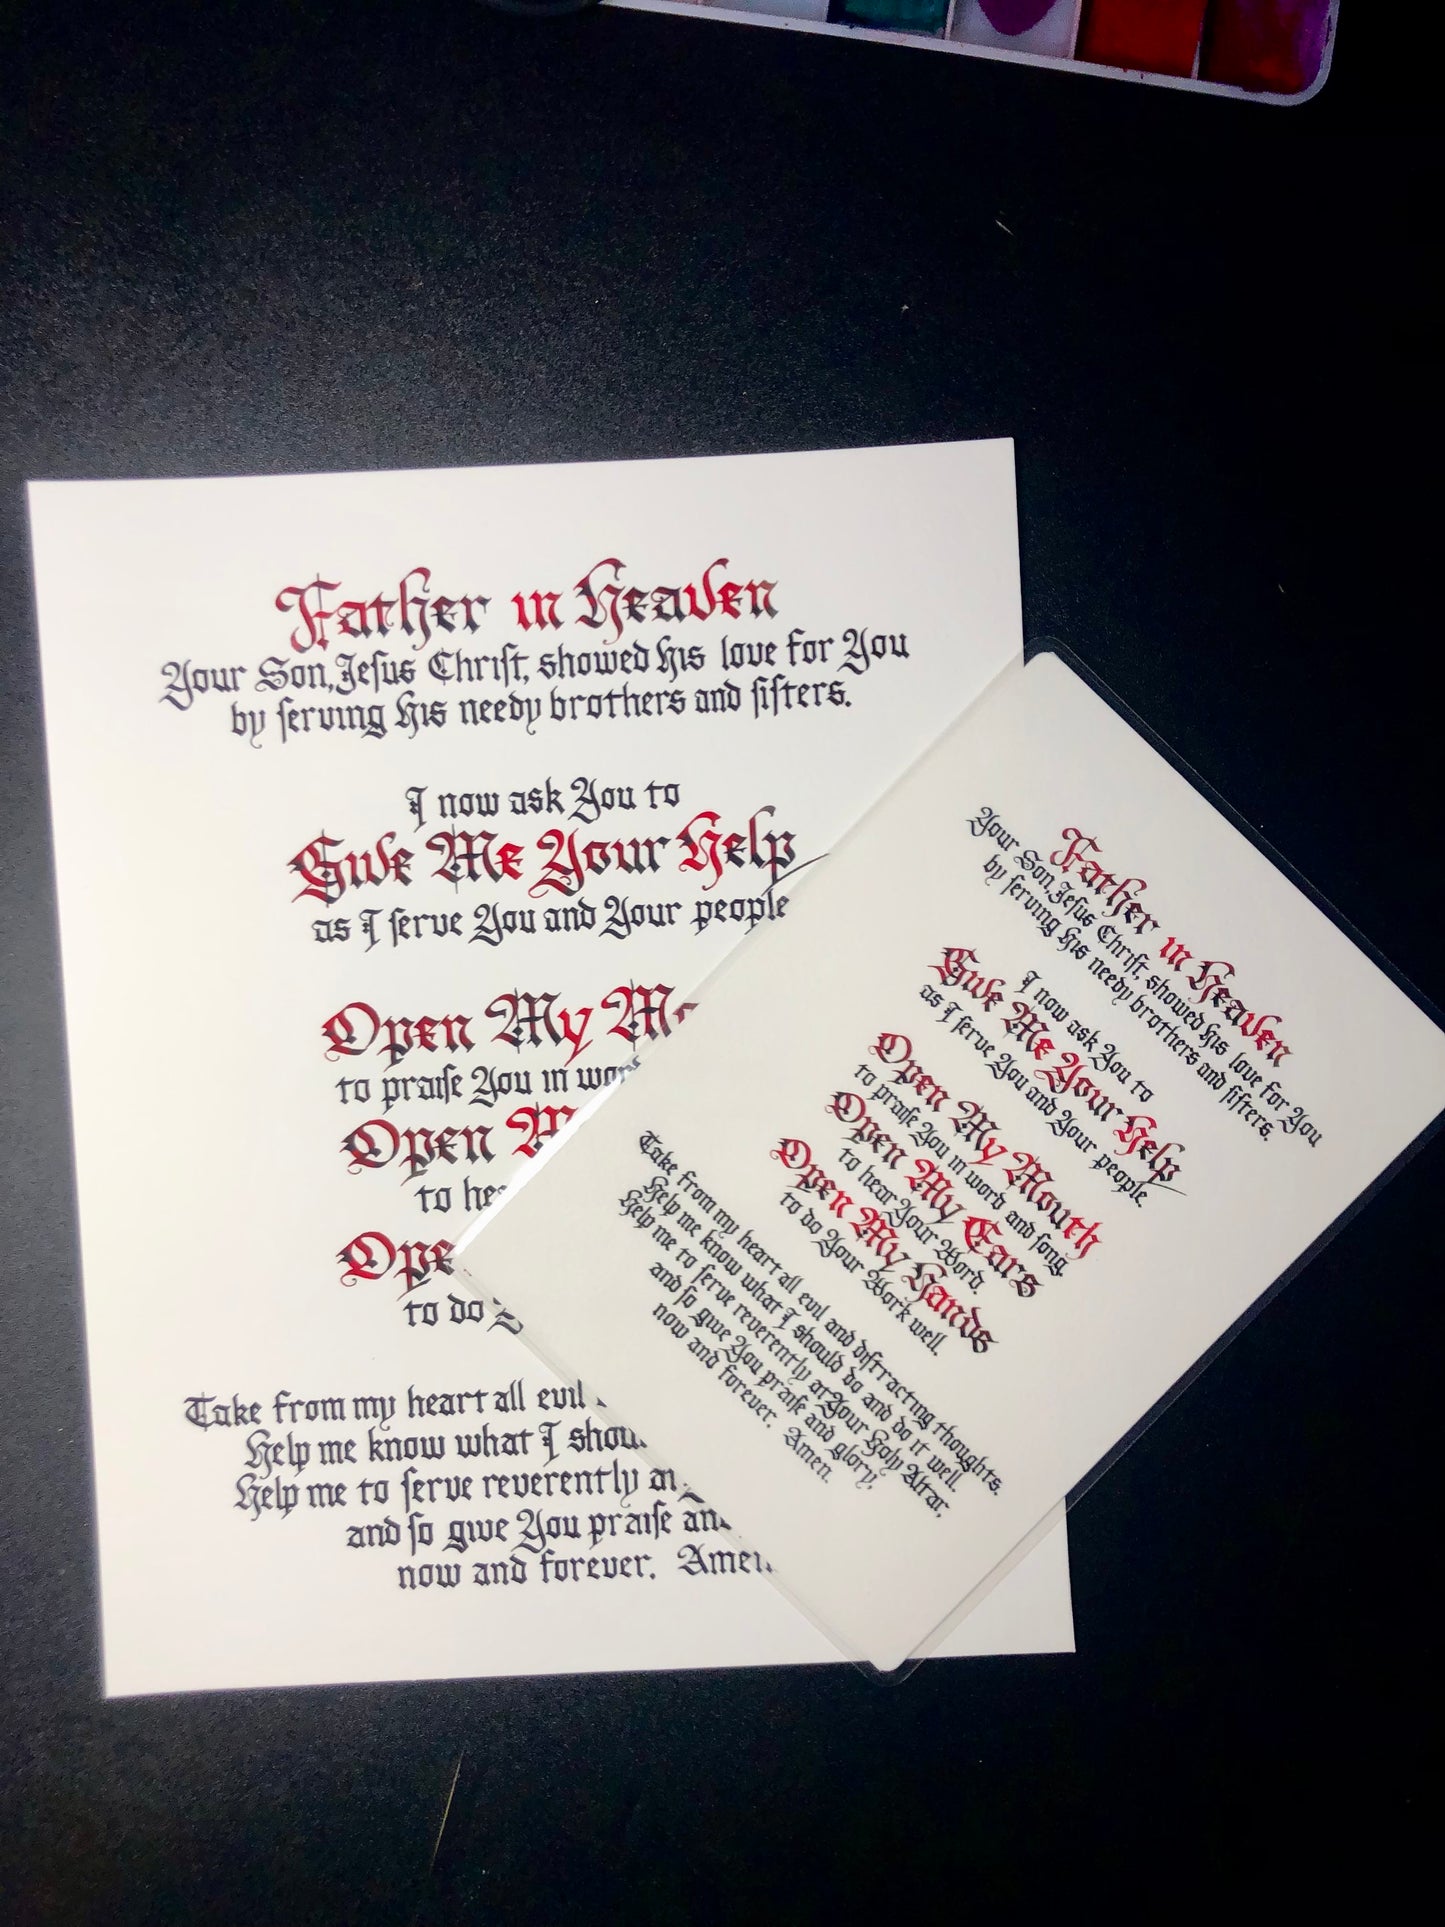 Father in Heaven
Your Son, Jeſus Chriſt, showed His love for You
by ſerving His needy brothers and ſiſters.
I now ask You to
Give Me Your Help
as I ſerve You and Your people
Open My
to praiſe You in
Open
to
to do
Take from my heart all evil
Help me know what I
Help me to ſerve reverently
and ſo give You praiſe
now and forever. Amen.
Father in Heaven
Your Son, Jeſus Chriſt, showed His love for You
by ſerving His needy brothers and ſiſters.
I now ask You to
Give Me Your Help
as I ſerve You and Your people.
Open My Mouth
to praiſe You in word and song.
Open My Ears
to hear Your Word.
Open My Hands
to do Your Work well.
Take from my heart all evil and diſtracting thoughts.
Help me know what I should do and do it well.
Help me to ſerve reverently at Your Holy Altar,
and ſo give You praiſe and glory,
now and forever. Amen.